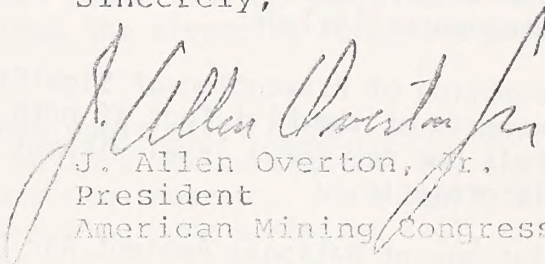 Sincerely,
J. Allen Overton Jr
J. Allen Overton, Jr.
President
American Mining Congress